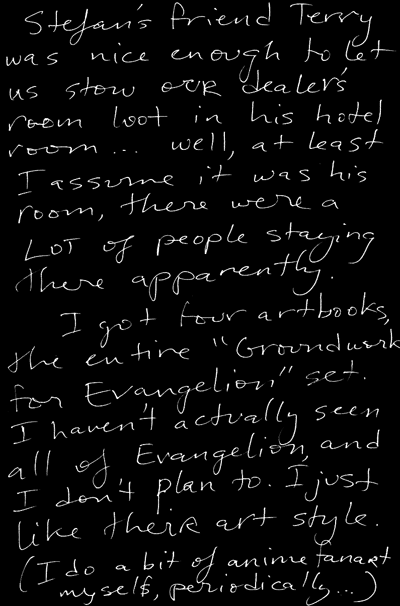 Stefan's friend Terry
was nice enough to let
us stow our dealer's
room loot in his hotel
room... well, at least
I assume it was his
room, there were a
LOT of people staying
there apparently.
I got four artbooks,
the entire "Groundwork
for Evangelion" set.
I haven't actually seen
all of Evangelion, and
I don't plan to. I just
like their art style.
(I do a bit of anime fanart
myself, periodically...)